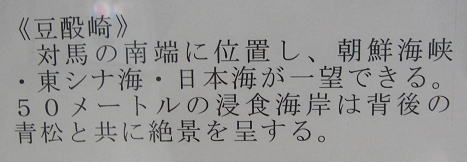 《豆酘崎》
対馬の南端に位置し、朝鮮海峡
・東シナ海・日本海が一望できる。
５０メートルの浸食海岸は背後の
青松と共に絶景を呈する。